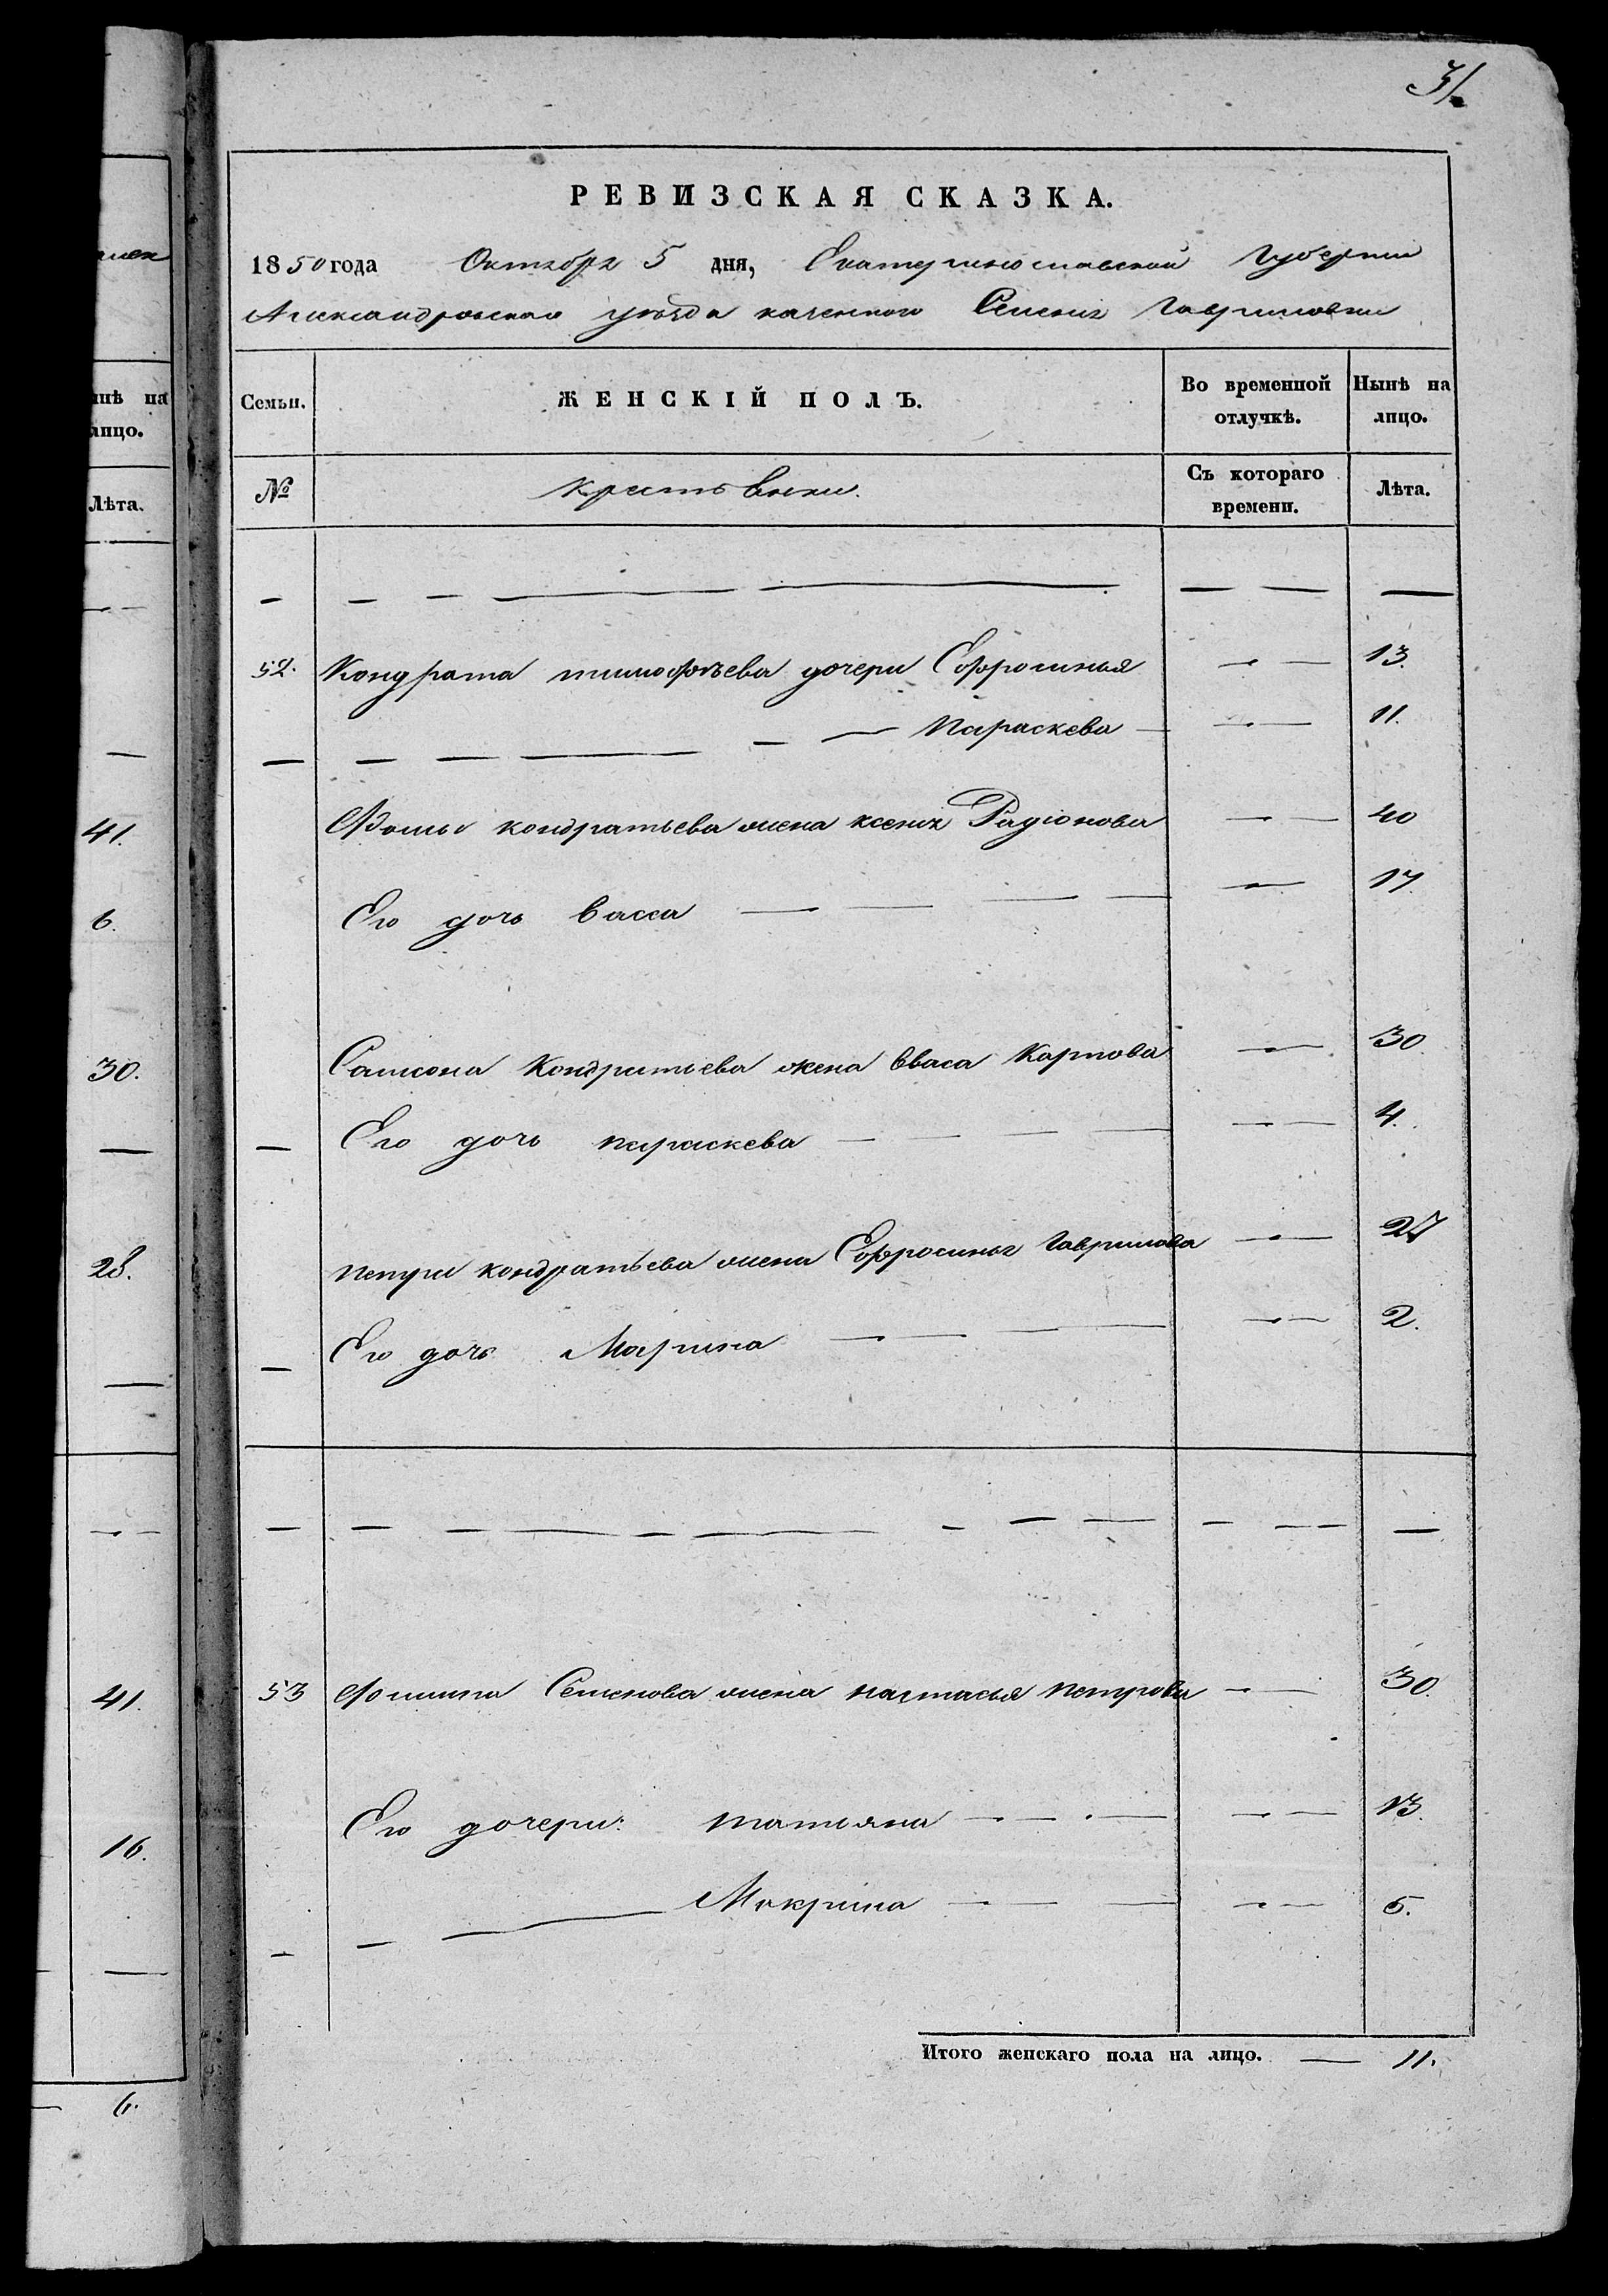 РЕВИЗСКАЯ СКАЗКА.
1850 года Октября 5 дня, Екатеринославской Губернии
Александровского уѣзда казенного Селения Гавриловки
Семьи. ЖЕНСКІЙ ПОЛЪ. Во временной отлучкѣ. Нынѣ на лицо.
№ Крестьянки. Съ котораго времени. Лѣта.
52. Кондрата тимофѣева дочери Ефросинья 13.
Параскева 11.
Фомы кондратьева жена ксения Радіонова 40
Его дочь васса 17.
Самсона Кондратьева жена Вваса Карпова 30
Его дочь параскева 4.
петра кондратьева жена Ефросинья Гаврилова 27
Его дочь Марина 2.
53 Филипа Семенова жена настасья петрова 30.
Его дочери: татьяна 13.
Макрина 5.
Итого женскаго пола на лицо. 11.
нѣ на
лицо.
Лѣта.
41.
6.
30.
28.
41.
16.
6.